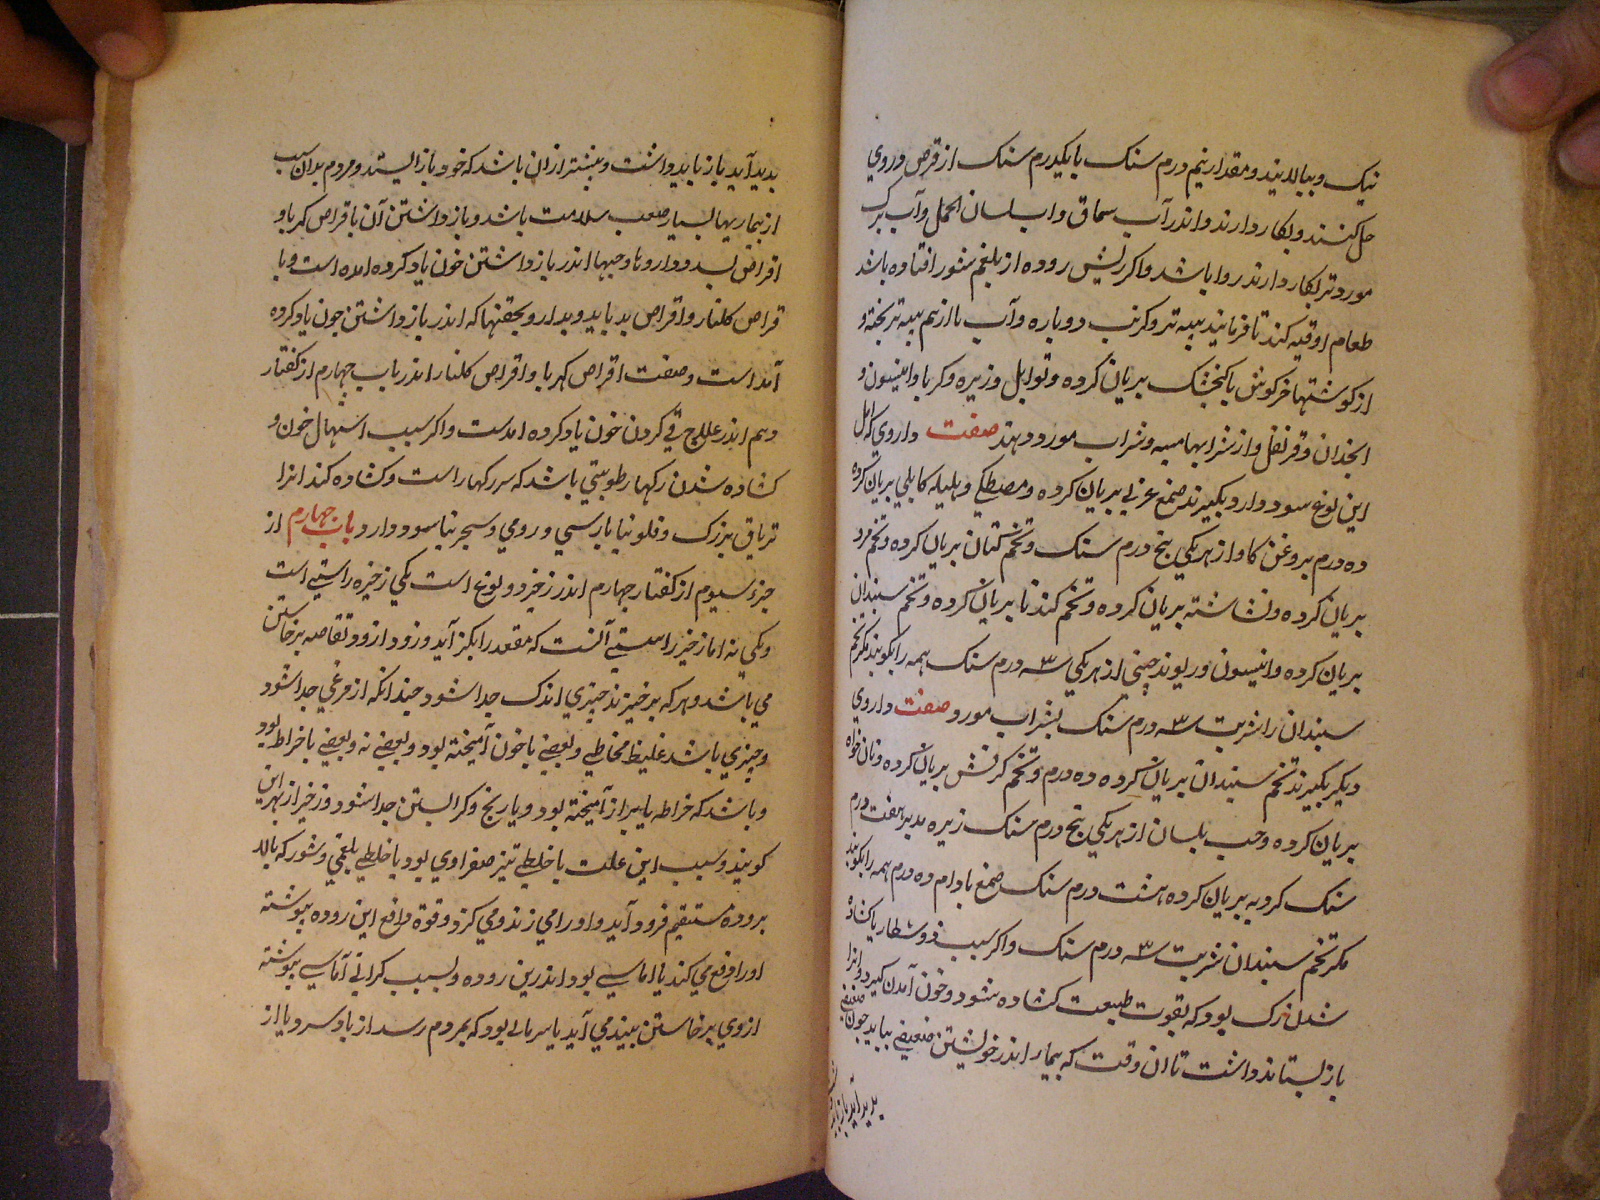 نیک و ببالایند و مقدار نیم درم سنک یا یکدرم سنک از قرص در وی
حل کنند و بکار دارند و اندر آب سماق و اب لسان الحمل و آب برک
مورد تر بکار دارند روا باشد و اکر ریش روده از بلغم شور افتاده باشد
طعام او قیه کند تا فرمایند به پیه تر و کرنب دوباره و آب با از نیم پیه تر پخته و
از کوشتها خرکوش یا کنجشک بریان کرده و توابل و زیره و کرویا و انیسون و
انجدان و قرنفل و از شرابها میبه و شراب مورد دهند صفت داروی که اهل
این نوع سود دارد بکیرند صمغ عربی بریان کرده و مصطکی و هلیله کابلی بریان کرده
ده درم بروغن کاو از هر یکی پنج درم سنک و تخم کتان بریان کرده و تخم مرو
بریان کرده و نشاشته بریان کرده و تخم کندنا بریان کرده و تخم سبندان
بریان کرده و انیسون و ریوند چینی از هر یکی سه درم سنک همه را بکوبند مکر تخم
سبندان را شربت سه درم سنک بشراب مورد صفت داروی
دیکر بکیرند تخم سبندان بریان کرده ده درم و تخم کرفس بریان کرده و نان خواه
بریان کرده و حب بلسان از هر یکی پنج درم سنک زیره مدبر هفت درم
سنک کرویه بریان کرده هشت درم سنک صمغ بادام ده درم همه را بکوبند
مکر تخم سبندان شربت سه درم سنک و اکر سبب ذوسنطاریا کشاده
شدن رک بود که بقوت طبیعت کشاده شود و خون آمدن کیرد و انرا
باز نبستاند داشت تا ان وقت که بیمار اندر خویشتن ضعیفی بیابد چون ضعیفی
پدید آید باز باید
پدید آید باز باید داشت و بیشتر از ان باشد که خود باز ایستد و مردم بدان سبب
از بیماریها بسیار صعب سلامت باشد و باز داشتن آن با قراص کهربا و
اقراص بسد و داروها و حبها اندر باز داشتن خون یاد کرده امده است و با
قراص کلنار و اقراص بد باید و بدارو بحقنها که اندر باز داشتن خون یاد کرده
آمداست و صفت اقراص کهربا و اقراص کلنار اندر باب چهارم از کفتار
دهم اندر علاج قی کردن خون یاد کرده امدست و اکر سبب اسهال خون و
کشاده شدن رکها رطوبتی باشد که سر رکها راست و کشاده کند انرا
تریاق بزرک و فلونیا پارسی و رومی و سجرنیا سود دارد باب چهارم از
جزء سیوم از کفتار چهارم اندر زخیر دو نوع است یکی زخیره راستی است
و یکی نه اما زخیر راستی آنست که مقعد را بکز آید و زود از ود تقاضه برخاستن
می باشد و هر که برخیزند چیزی اندک جدا شود چندانکه از مرغی جدا شود
و چیزی باشد غلیظ مخاطی و بعضی با خون آمیخته بود و بعضی نه و بعضی با خراطه بود
و باشد که خراطه یا براز آمیخته بود و با رنج و کرالستن جدا شود و زخیر از بهر این
کویند و سبب این علت یا خلطی تیز صفراوی بود یا خلطی بلغمی و شور که بالا
بروده مستقیم فرود آید و او را می زند و می کزد و قوة دافع این روده پیوسته
او را دفع می کند یا اماسی بود اندرین روده و بسبب کرانی آماسی پیوسته
از وی برخاستن ببیند می آید یا سرمائی بود که بمردم رسد از باد سرد یا از